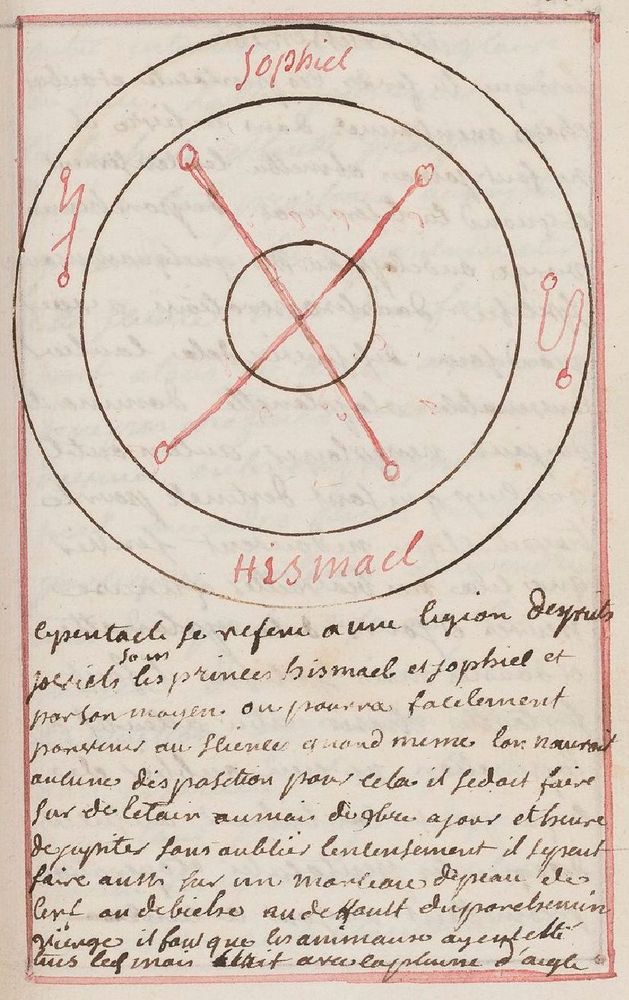 Sophiel
Hismael
le pentacle se refere a une legion desprits
sous
les princes hismael et sophiel et
par son moyen on pourra facilement
parvenir au sciences quand meme lon nauroit
aucune disposition pour cela il se doit faire
sur de letain au mois de 9bre a jour et heure
de jupiter sans oublier lencensement il se peut
faire aussi sur un morceau de peau de
cerf ou de biche au deffault du parchemin
vierge il faut que les animaux ayent esté
tués led mois avec la plume d'aigle